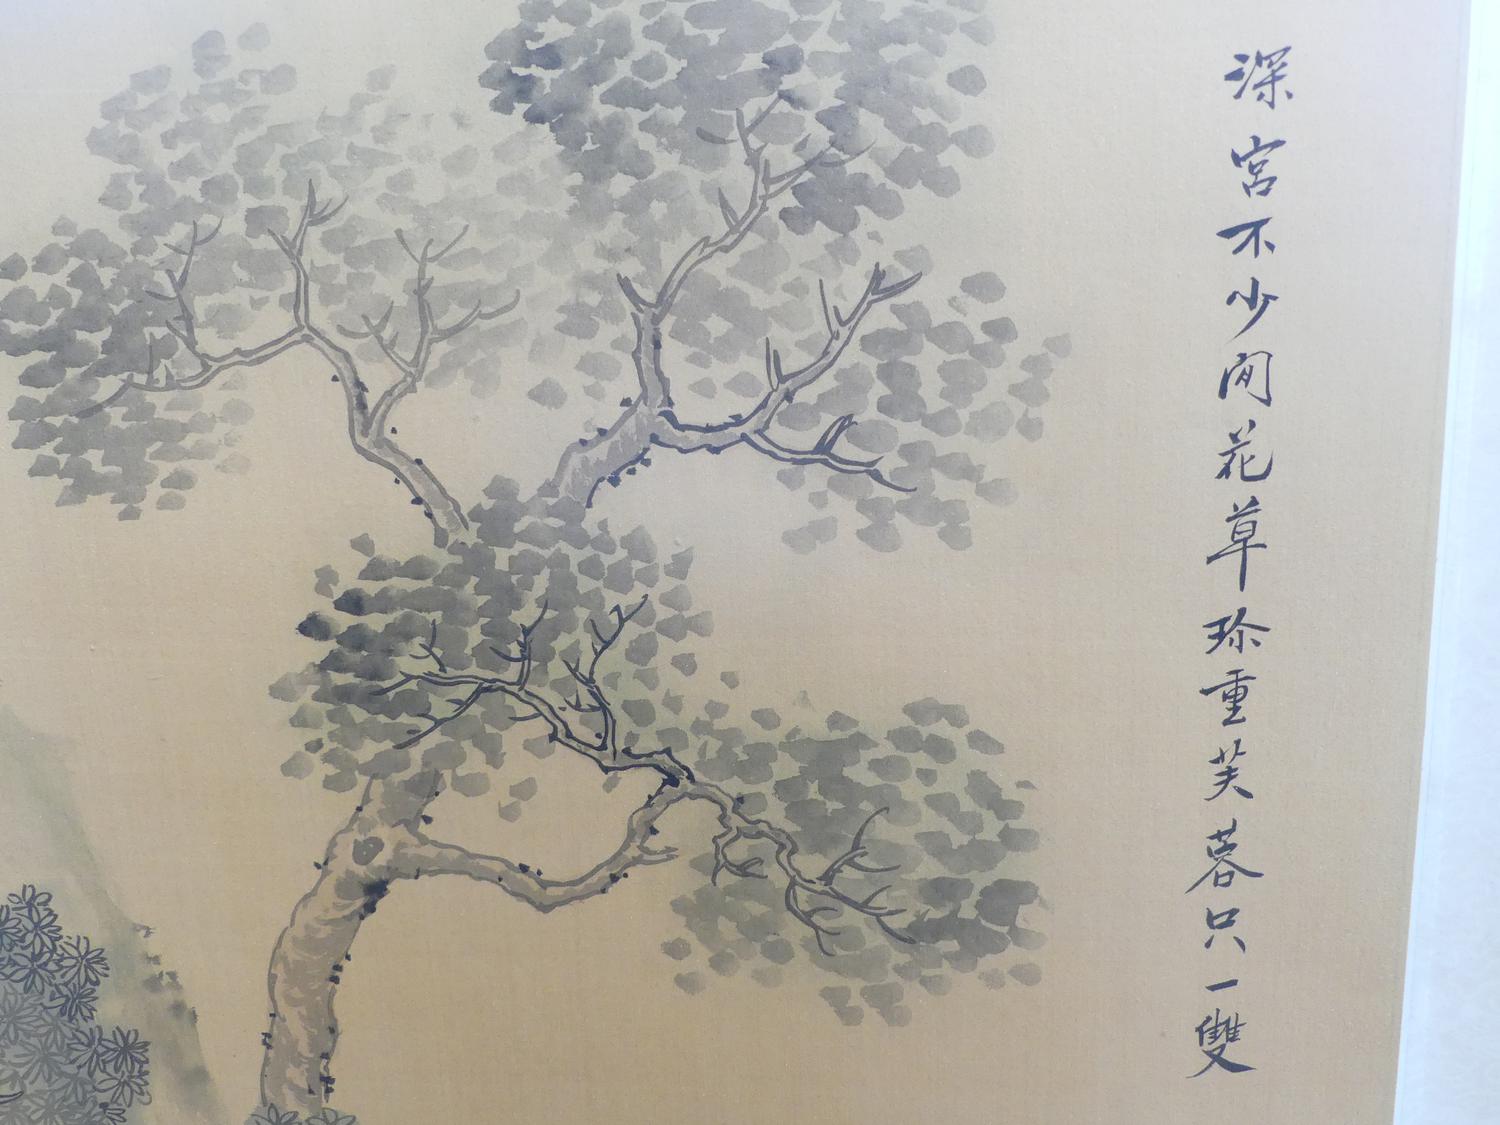 深宮不少閒花草珎重芙蓉只一雙